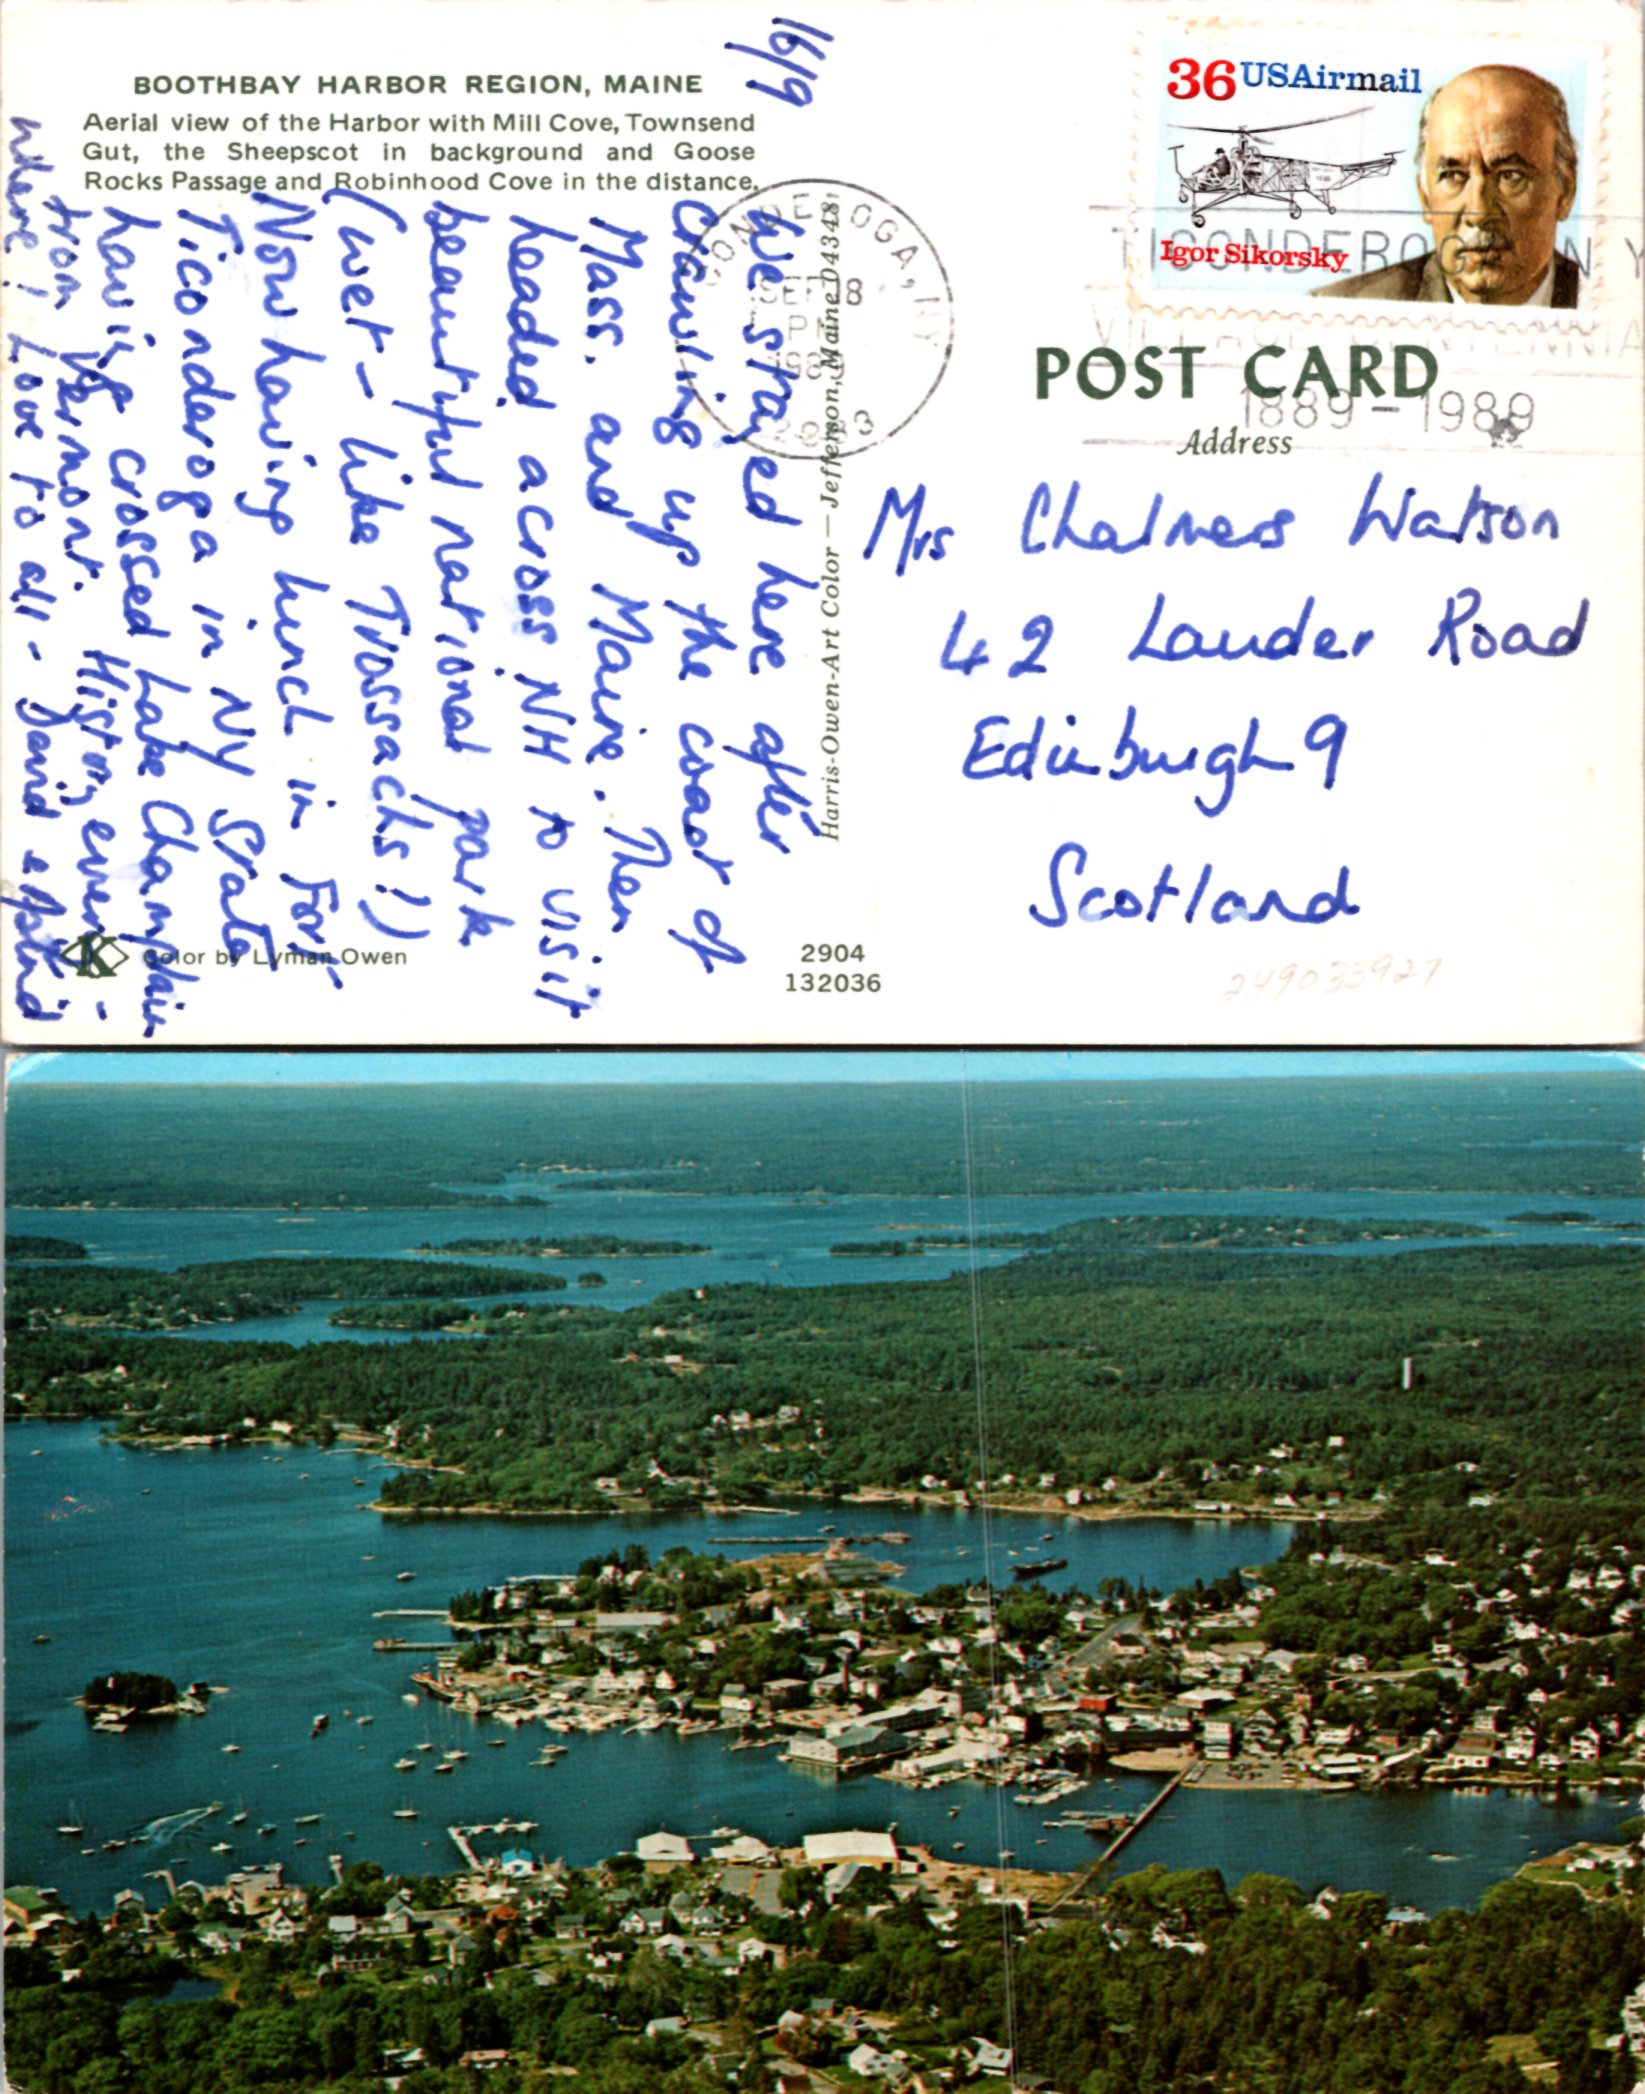 BOOTHBAY HARBOR REGION, MAINE
Aerial view of the Harbor with Mill Cove, Townsend
Gut, the Sheepscot in background and Goose
Rocks Passage and Robinhood Cove in the distance.
16/9
We stayed here after
crawling up the coast of
Mass. and Maine. Then
headed across NH to visit
beautiful national park
(wet - like Trossachs!)
Now having lunch in Fort
Ticonderoga in NY State
having crossed Lake Champlain
from Vermont. History every-
where! Love to all - David &
Color by Lyman Owen
2904
132036
Harris-Owen-Art Color — Jefferson, Maine 04348
36 USAirmail
Igor Sikorsky
CONDEROGA, NY
SEP 18
PM
1989
TICONDEROGA NY
VILLAGE CENTENNIA
1889 - 1989
POST CARD
Address
Mrs Chalmers Watson
42 Lauder Road
Edinburgh 9
Scotland
249033927